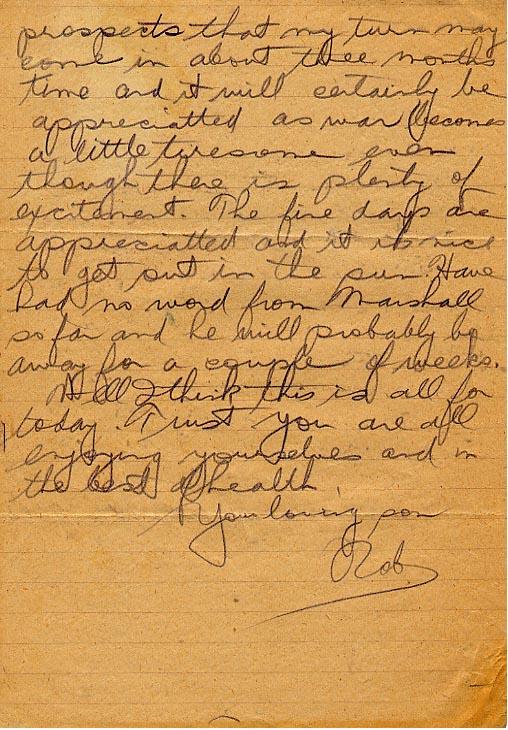 prospects that my turn may
come in about three months
time and it will certainly be
appreciatted as war becomes
a little tiresome even
though there is plenty of
excitement. The fine days are
appreciatted and it is nice
to get out in the sun. Have
had no word from Marshall
so far and he will probably be
away for a couple of weeks.
Well I think this is all for
today. Trust you are all
enjoying yourselves and in
the best of health.
Your loving son
Rob.